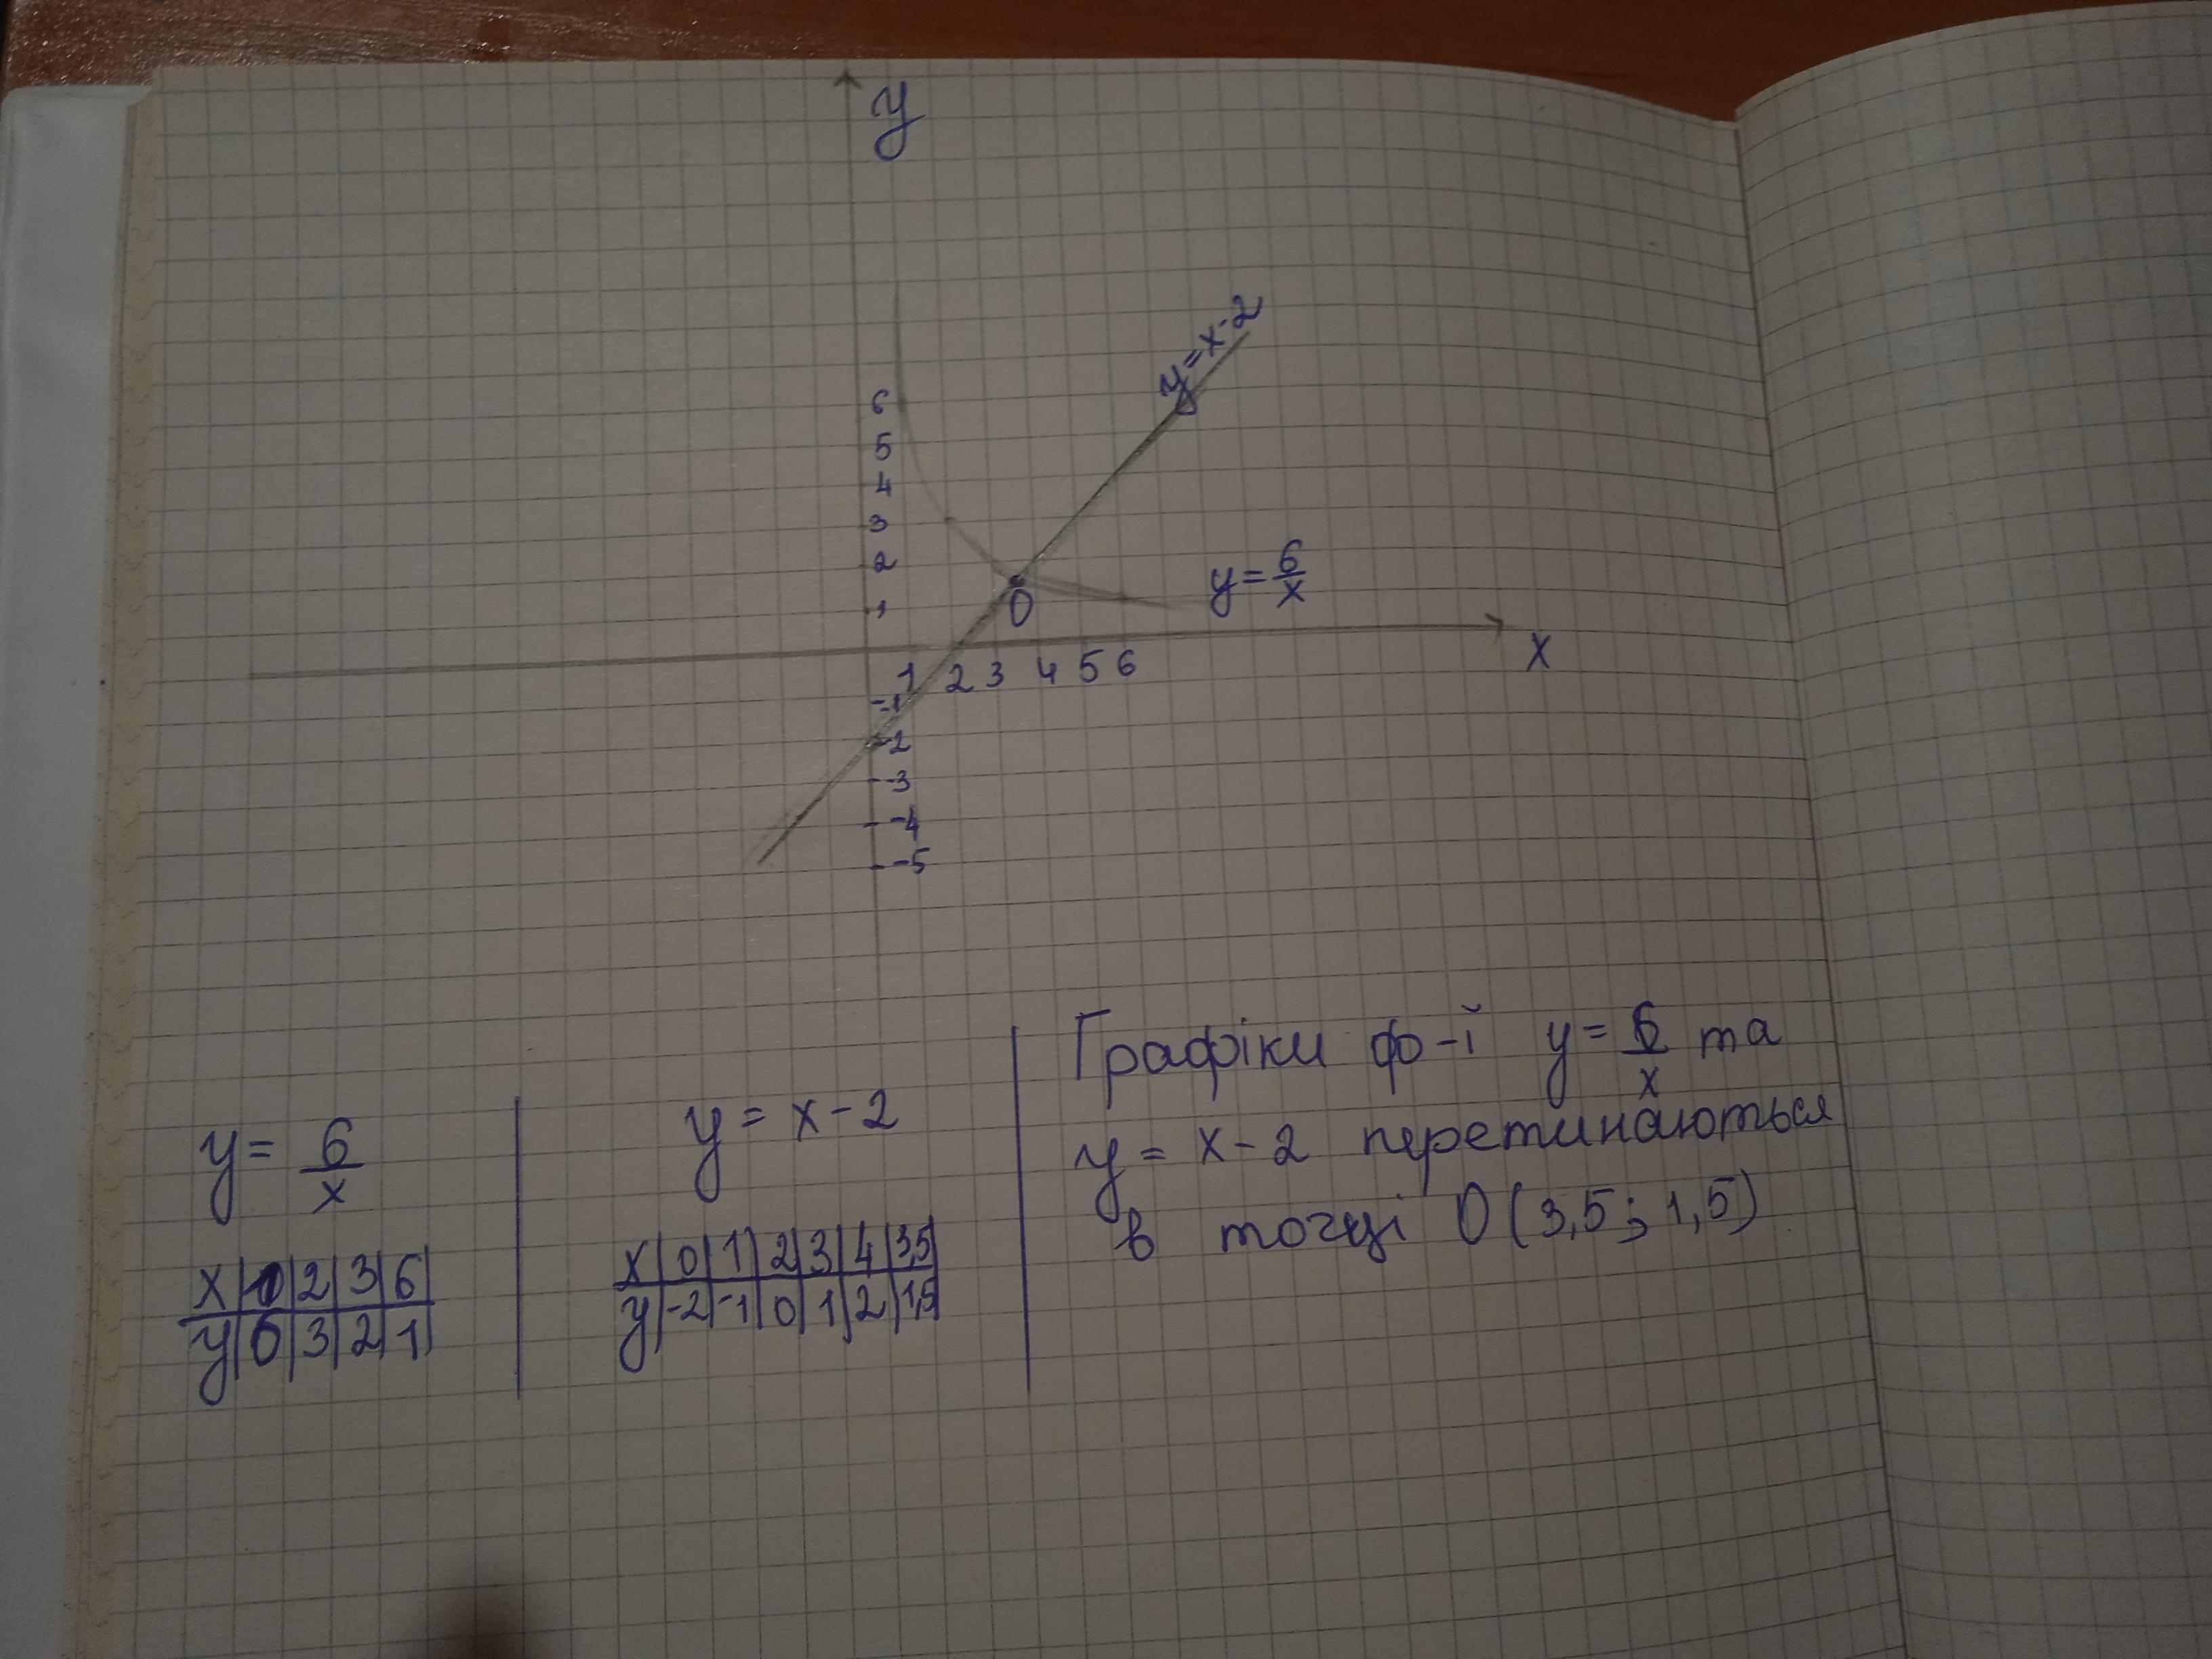 y
y=x-2
6
5
4
3
2
1
y=6/x
O
x
1 2 3 4 5 6
-1
-2
-3
-4
-5
y = 6/x
x | | 2 | 3 | 6 |
y | 6 | 3 | 2 | 1 |
y = x - 2
x | 0 | 1 | 2 | 3 | 4 | 3,5
y | -2 | -1 | 0 | 1 | 2 | 1,5
Графіки ф-ї y = 6/x та
y = x - 2 перетинаються
в точці O (3,5; 1,5)